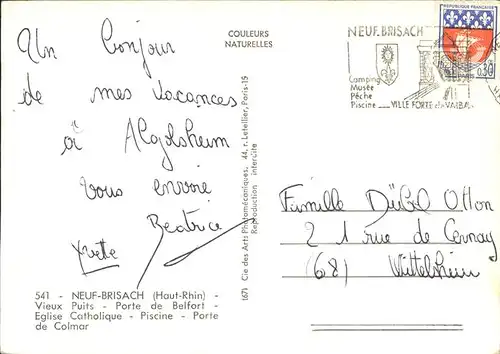 COULEURS
NATURELLES
Un bonjour
de mes vacances
à Algolsheim
vous envoie
Béatrice
Yvette
541 - NEUF-BRISACH (Haut-Rhin) -
Vieux Puits - Porte de Belfort -
Eglise Catholique - Piscine - Porte
de Colmar
1671 Cie des Arts Photomécaniques, 44, r. Letellier, Paris-15
Reproduction interdite
NEUF.BRISACH
Camping
Musée
Pêche
Piscine
VILLE FORTE de VAUBAN
REPUBLIQUE FRANÇAISE
0,30
PARIS
Famille Dübel Otton
2 1 rue de Cernay
(68) Wittelsheim